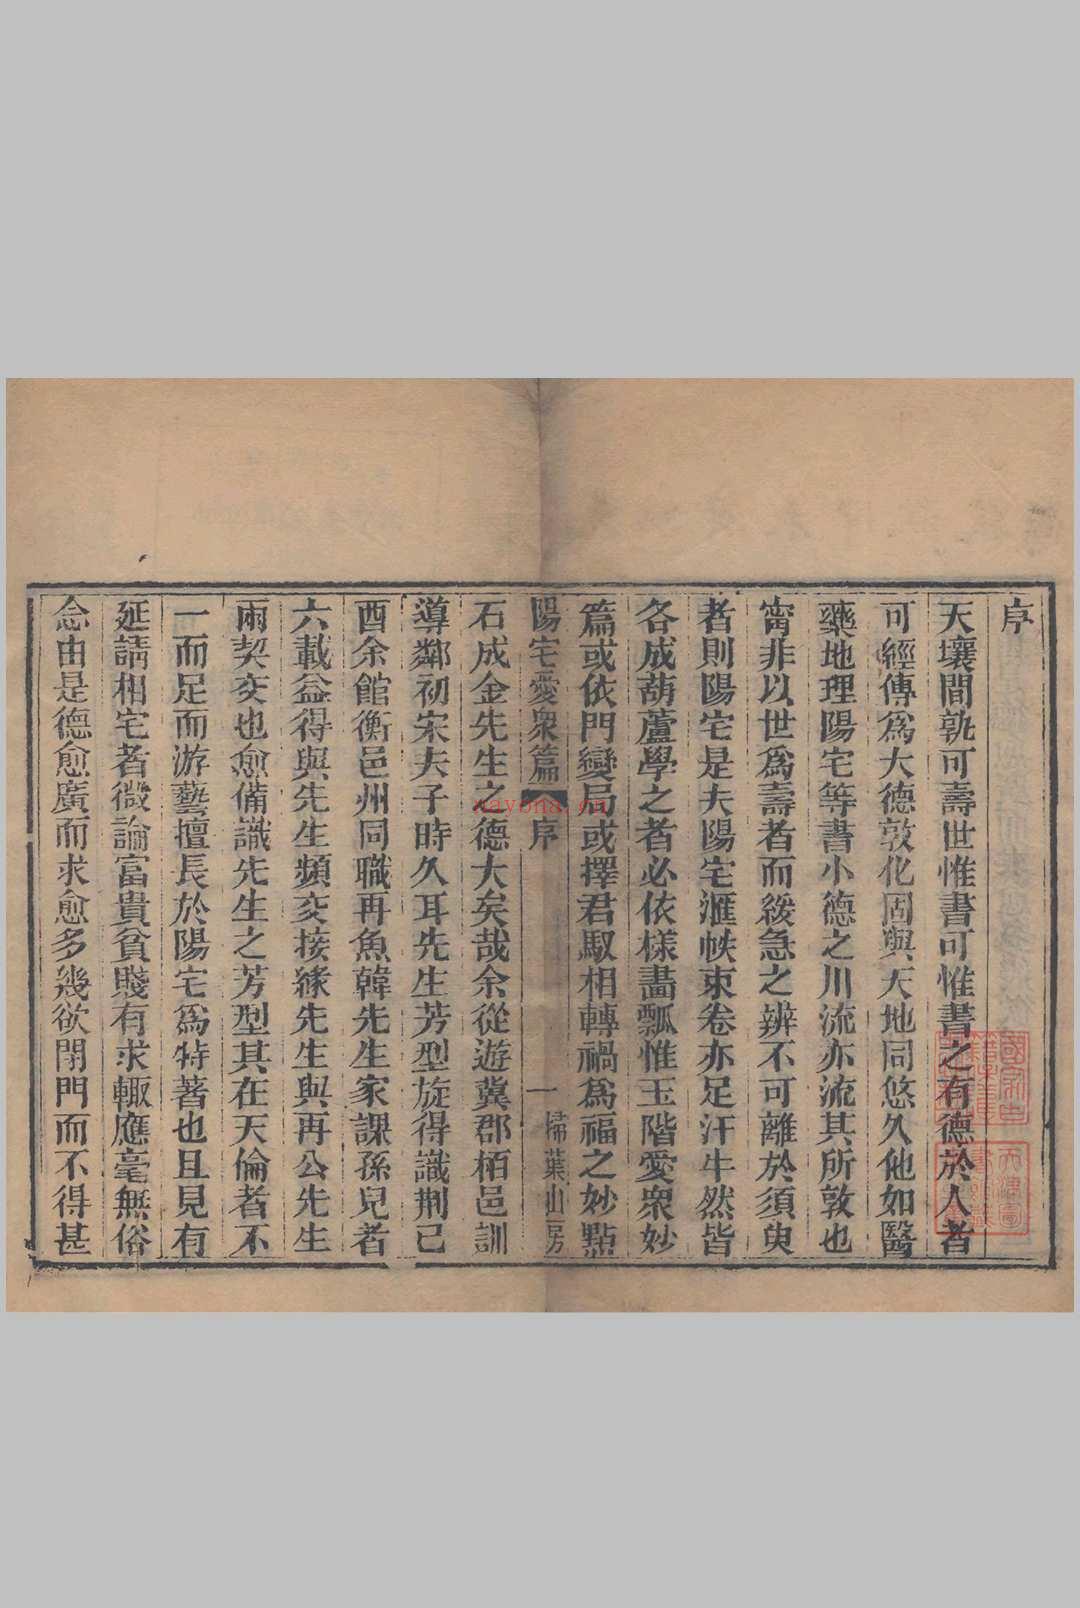 序
天壤間孰可壽世惟書可惟書之有德於人者
可經傳爲大德敦化固與天地同悠久他如醫
藥地理陽宅等書小德之川流亦流其所敦也
甯非以世爲壽者而緩急之辨不可離於須臾
者則陽宅是夫陽宅滙帙束卷亦足汗牛然皆
各成葫蘆學之者必依樣畵瓢惟玉階愛衆妙
篇或依門變局或擇君馭相轉禍爲福之妙點
陽宅愛衆篇 序 一 掃葉山房
石成金先生之德大矣哉余從遊冀郡栢邑訓
導鄰初宋夫子時久耳先生芳型旋得識荆己
酉余館衡邑州同職再魚韓先生家課孫兒者
六載益得與先生頻交接緣先生與再公先生
兩契交也愈備識先生之芳型其在天倫者不
一而足而游藝擅長於陽宅爲特著也且見有
延請相宅者微論富貴貧賤有求輙應毫無俗
念由是德愈廣而求愈多幾欲閉門而不得甚
nayona.cn